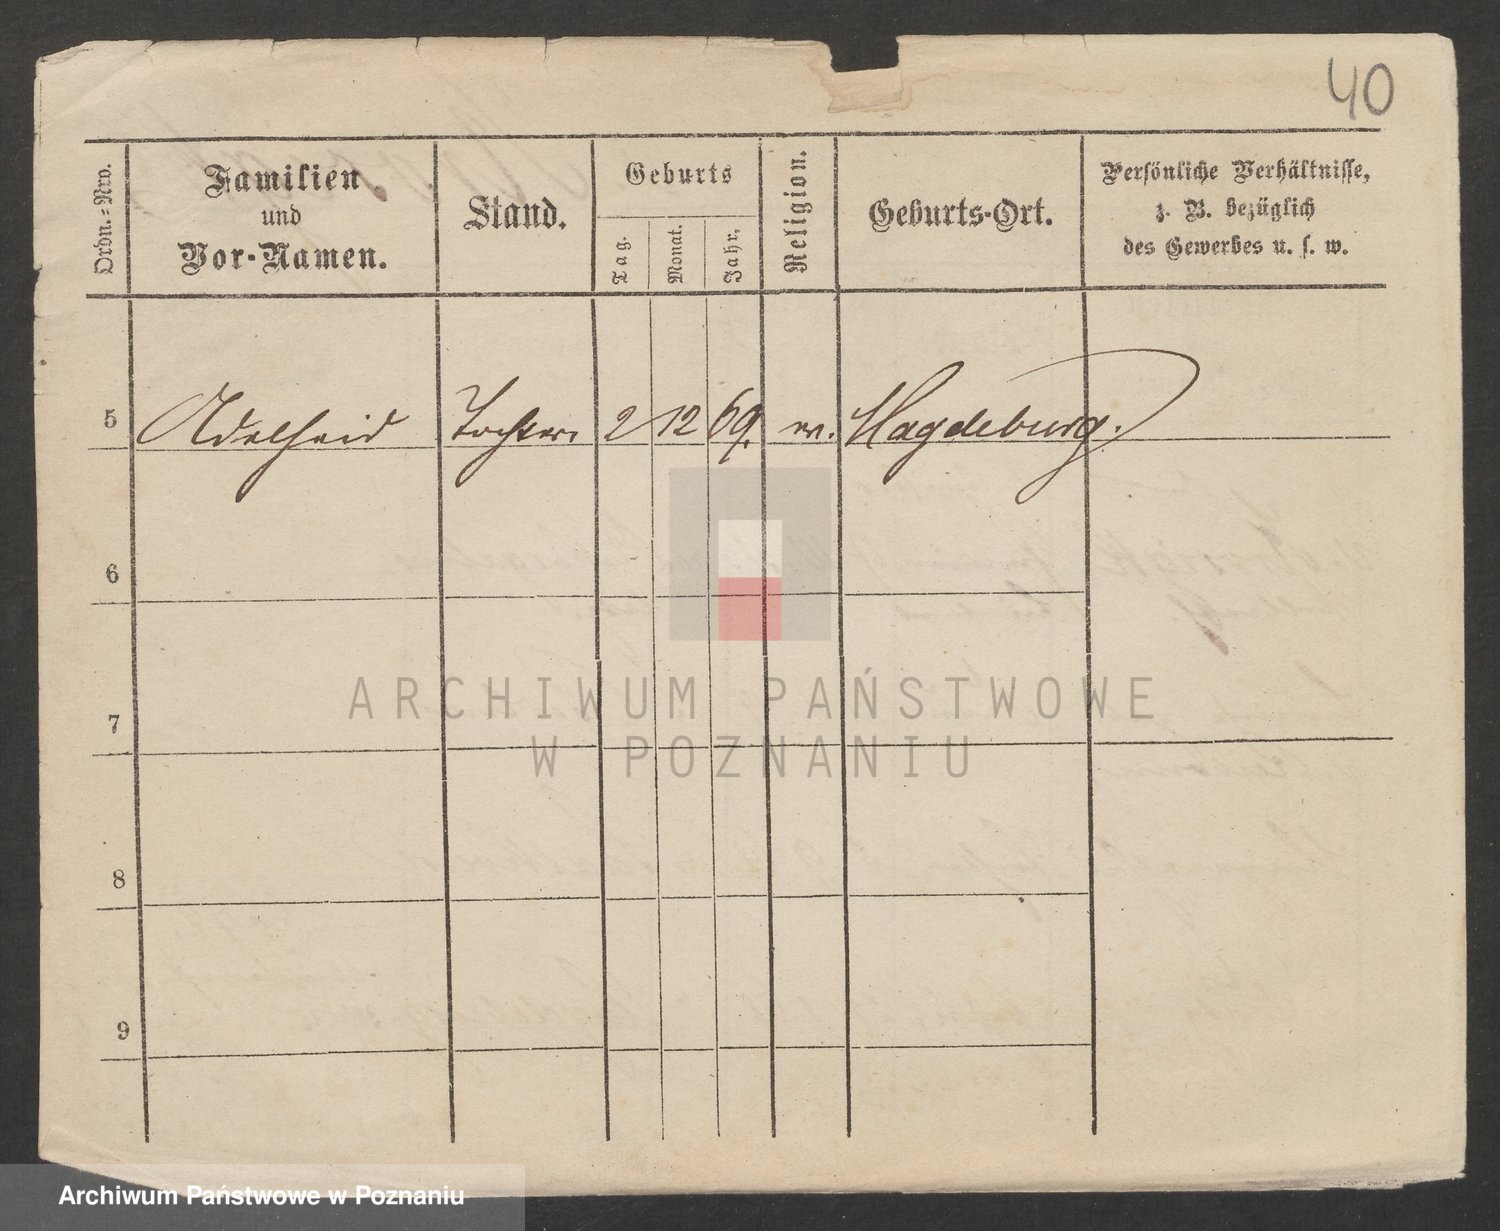 40
Ordn.=Nro.
Familien
und
Vor-Namen.
Stand.
Geburts
Tag.
Monat.
Jahr,
Religion.
Geburts-Ort.
Persönliche Verhältnisse,
z. B. bezüglich
des Gewerbes u. s. w.
5 Adelheid Tochter 2 12 69. ev. Magdeburg.
6
7
8
9
ARCHIWUM PAŃSTWOWE
W POZNANIU
Archiwum Państwowe w Poznaniu